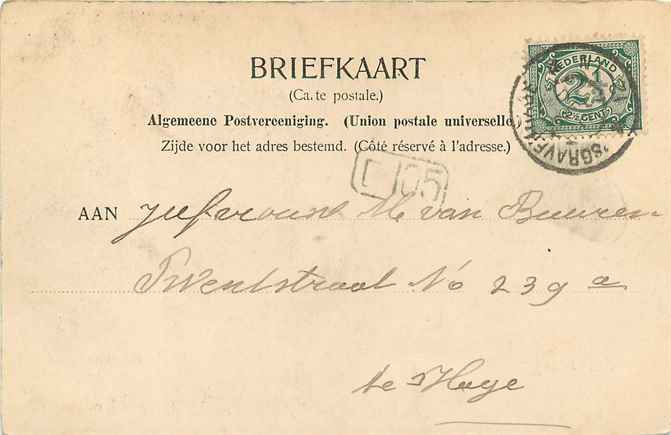 BRIEFKAART
(Ca.te postale.)
Algemeene Postvereeniging. (Union postale universelle
Zijde voor het adres bestemd. (Côté réservé à l'adresse.)
NEDERLAND
2½
2½ CENT
'SGRAVENHAGE
05
AAN Jufvrouw M van Buuren
No 239 a
te sHage